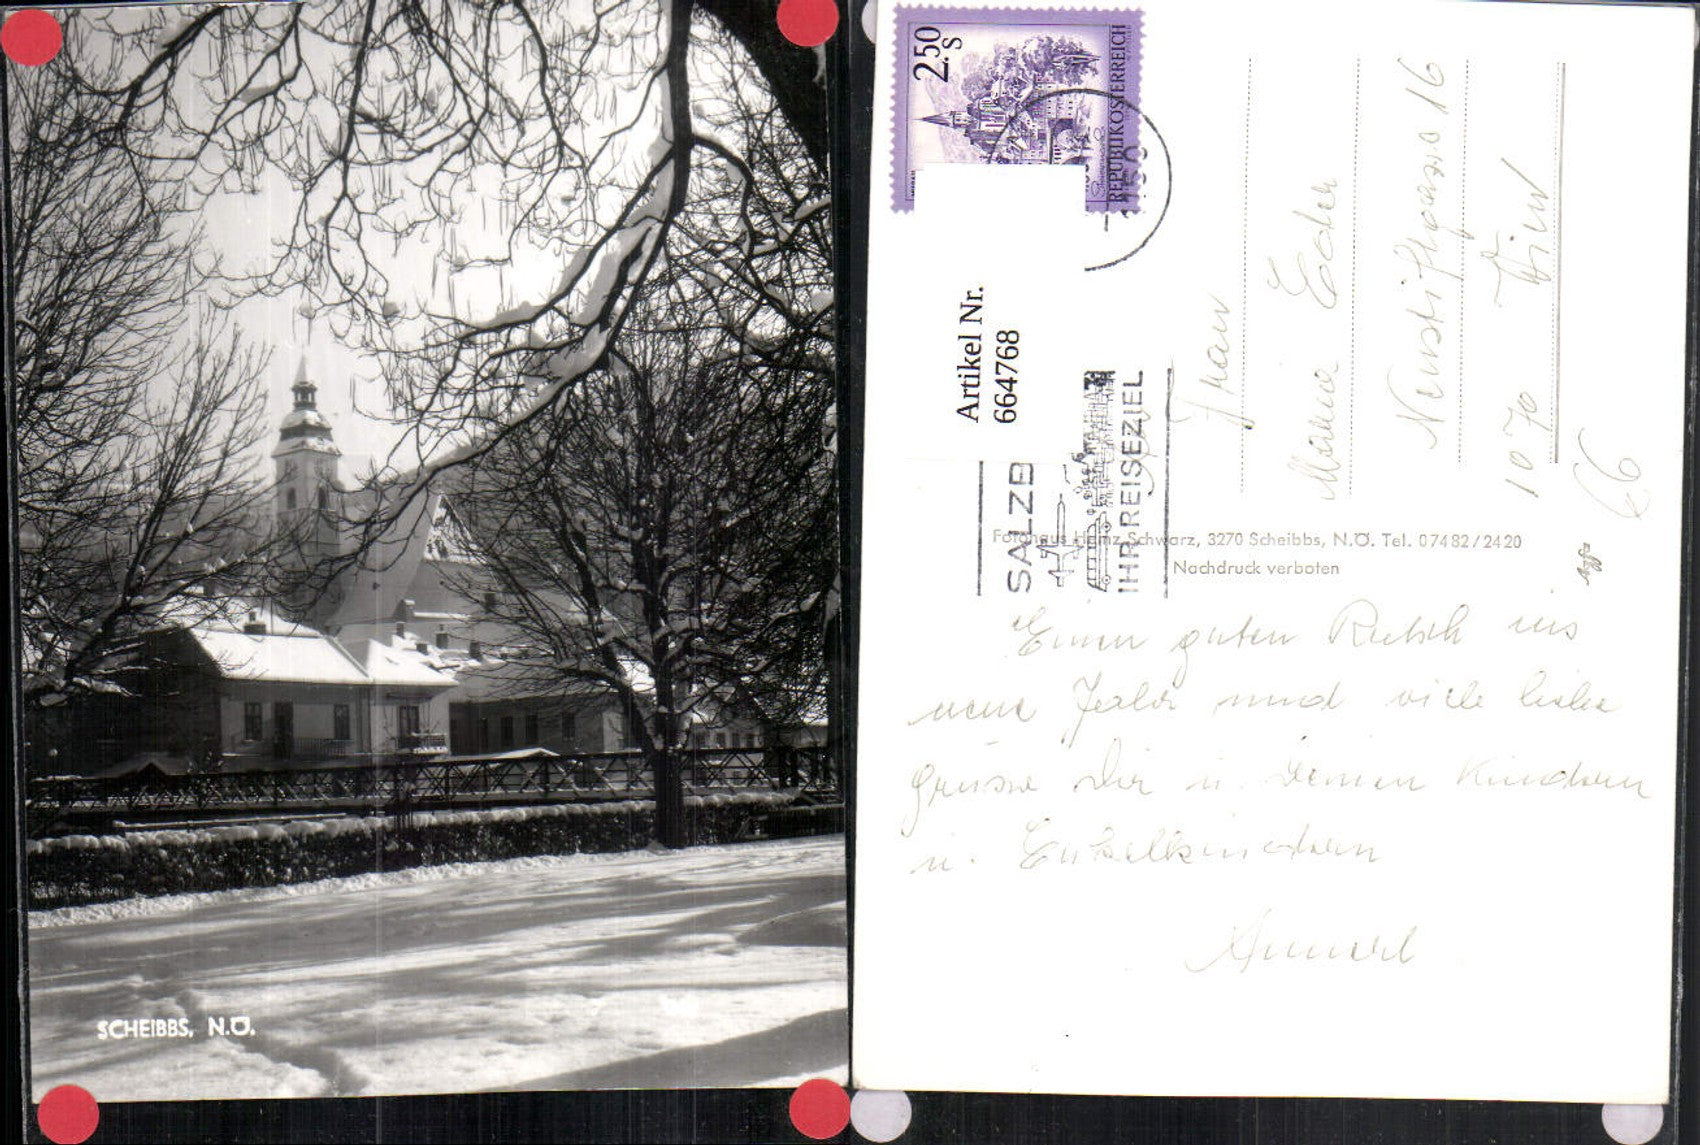 SCHEIBBS, N.Ö.
2.50 S
REPUBLIK ÖSTERREICH
Artikel Nr.
664768
SALZB
IHR REISEZIEL
Frau
Maria Eder
Neustiftgasse 16
1070 Wien
66
Fotohaus Heinz Schwarz, 3270 Scheibbs, N.Ö. Tel. 07482/2420
Nachdruck verboten
Einen guten Rutsch ins
neue Jahr und viele liebe
Grüsse Dir u. Deinen Kindern
u. Enkelkindern